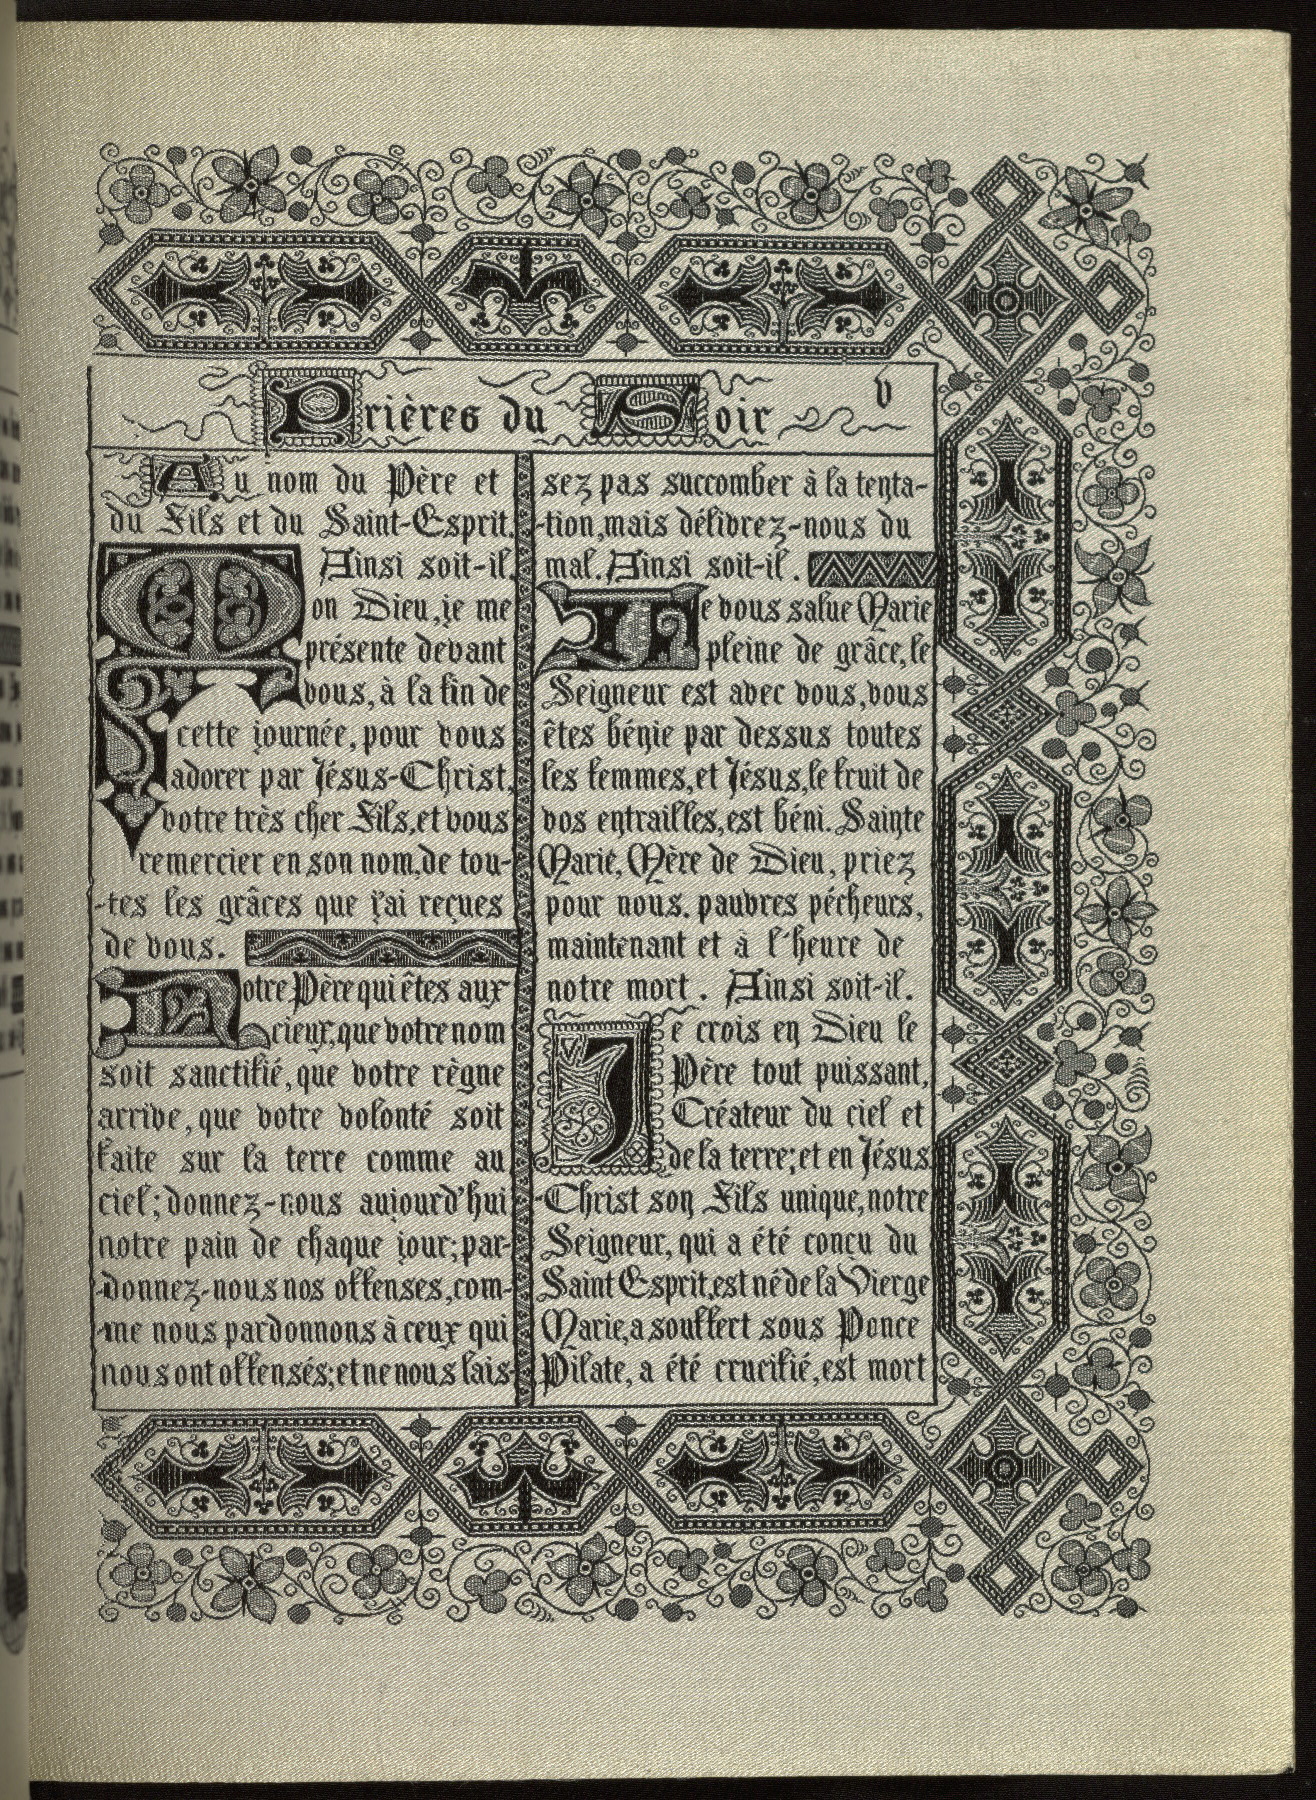 Prières du Soir
v
Au nom du Père et
du Fils et du Saint-Esprit.
Ainsi soit-il.
Mon Dieu, je me
présente devant
vous, à la fin de
cette journée, pour vous
adorer par Jésus-Christ,
votre très cher Fils, et vous
remercier en son nom, de tou-
-tes les grâces que j'ai reçues
de vous.
Notre Père qui êtes aux
cieux, que votre nom
soit sanctifié, que votre règne
arrive, que votre volonté soit
faite sur la terre comme au
ciel; donnez-nous aujourd'hui
notre pain de chaque jour; par-
-donnez-nous nos offenses, com-
-me nous pardonnons à ceux qui
nous ont offensés; et ne nous lais-
sez pas succomber à la tenta-
-tion, mais délivrez-nous du
mal. Ainsi soit-il.
Je vous salue Marie
pleine de grâce, le
Seigneur est avec vous, vous
êtes bénie par dessus toutes
les femmes, et Jésus, le fruit de
vos entrailles, est béni. Sainte
Marie, Mère de Dieu, priez
pour nous, pauvres pécheurs,
maintenant et à l'heure de
notre mort. Ainsi soit-il.
Je crois en Dieu le
Père tout puissant,
Créateur du ciel et
de la terre; et en Jésus
-Christ son Fils unique, notre
Seigneur, qui a été conçu du
Saint Esprit, est né de la Vierge
Marie, a souffert sous Ponce
Pilate, a été crucifié, est mort